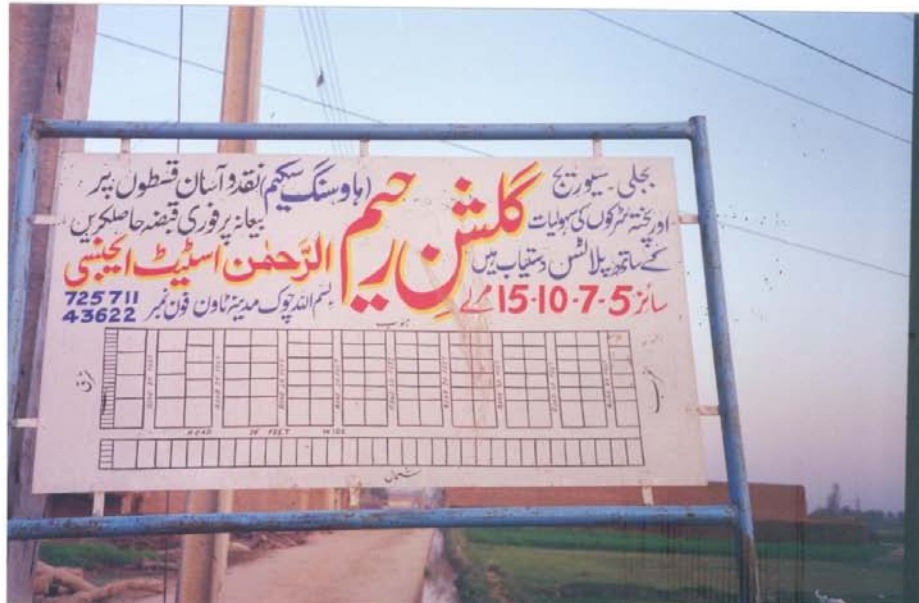 بجلی۔ سیوریج
اور پختہ سڑکوں کی سہولیات
کے ساتھ پلاٹس دستیاب ہیں
سائز 5-7-10-15 مرلے
گلشن رحیم
(ہاوسنگ سکیم) نقد و آسان قسطوں پر
بیعانہ پر فوری قبضہ حاصل کریں
الرَّحمٰن اسٹیٹ ایجنسی
بسم اللہ چوک مدینہ ٹاون فون نمبر
725711
43622
شرق
ROAD FEET WIDE
شمال